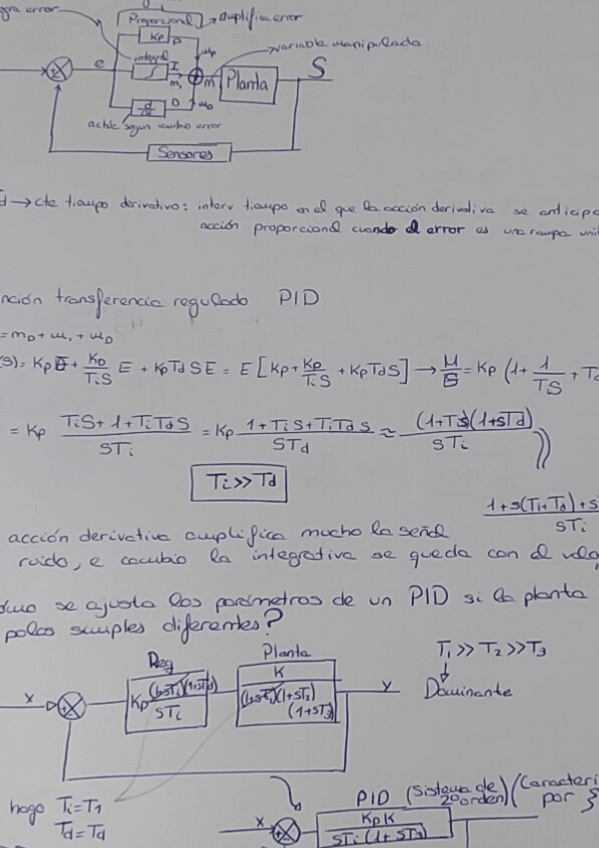 gra error
Proporcional → amplifica error
Kp P
mp
variable manipulada
integral
e
∫ I
mi
m
Planta
S
d/dt D
mD
actúe según cambio error
Sensores
d → cte tiempo derivativo: interv tiempo en el que la acción derivativa se anticipa
acción proporcional cuando el error es una rampa unit
nción transferencia regulado PID
= mD + mi + mD
(S) = Kp E + KD/TiS E + KpTd SE = E [Kp + Kp/TiS + KpTdS] → M/E = Kp (1 + 1/TS + Td
= Kp TiS + 1 + TiTdS / STi = Kp 1 + TiS + TiTdS / STd ≈ (1+TiS)(1+sTd) / STi
Ti >> Td
1+s(Ti+Td)+s / STi
acción derivativa amplifica mucho la señal
ruido, e cambio la integrativa se queda con el valo
ómo se ajusta los parámetros de un PID si la planta
polos simples diferentes?
Reg
Planta
T1 >> T2 >> T3
Dominante
x
Kp (1+sTi)(1+sTd) / STi
K / (1+sT1)(1+sT2)(1+sT3)
y
hago Ti = T1
Td = Td
PID (Sistema de 2º orden) (Caracteri por ξ
x
KpK / STi(1+sT3)